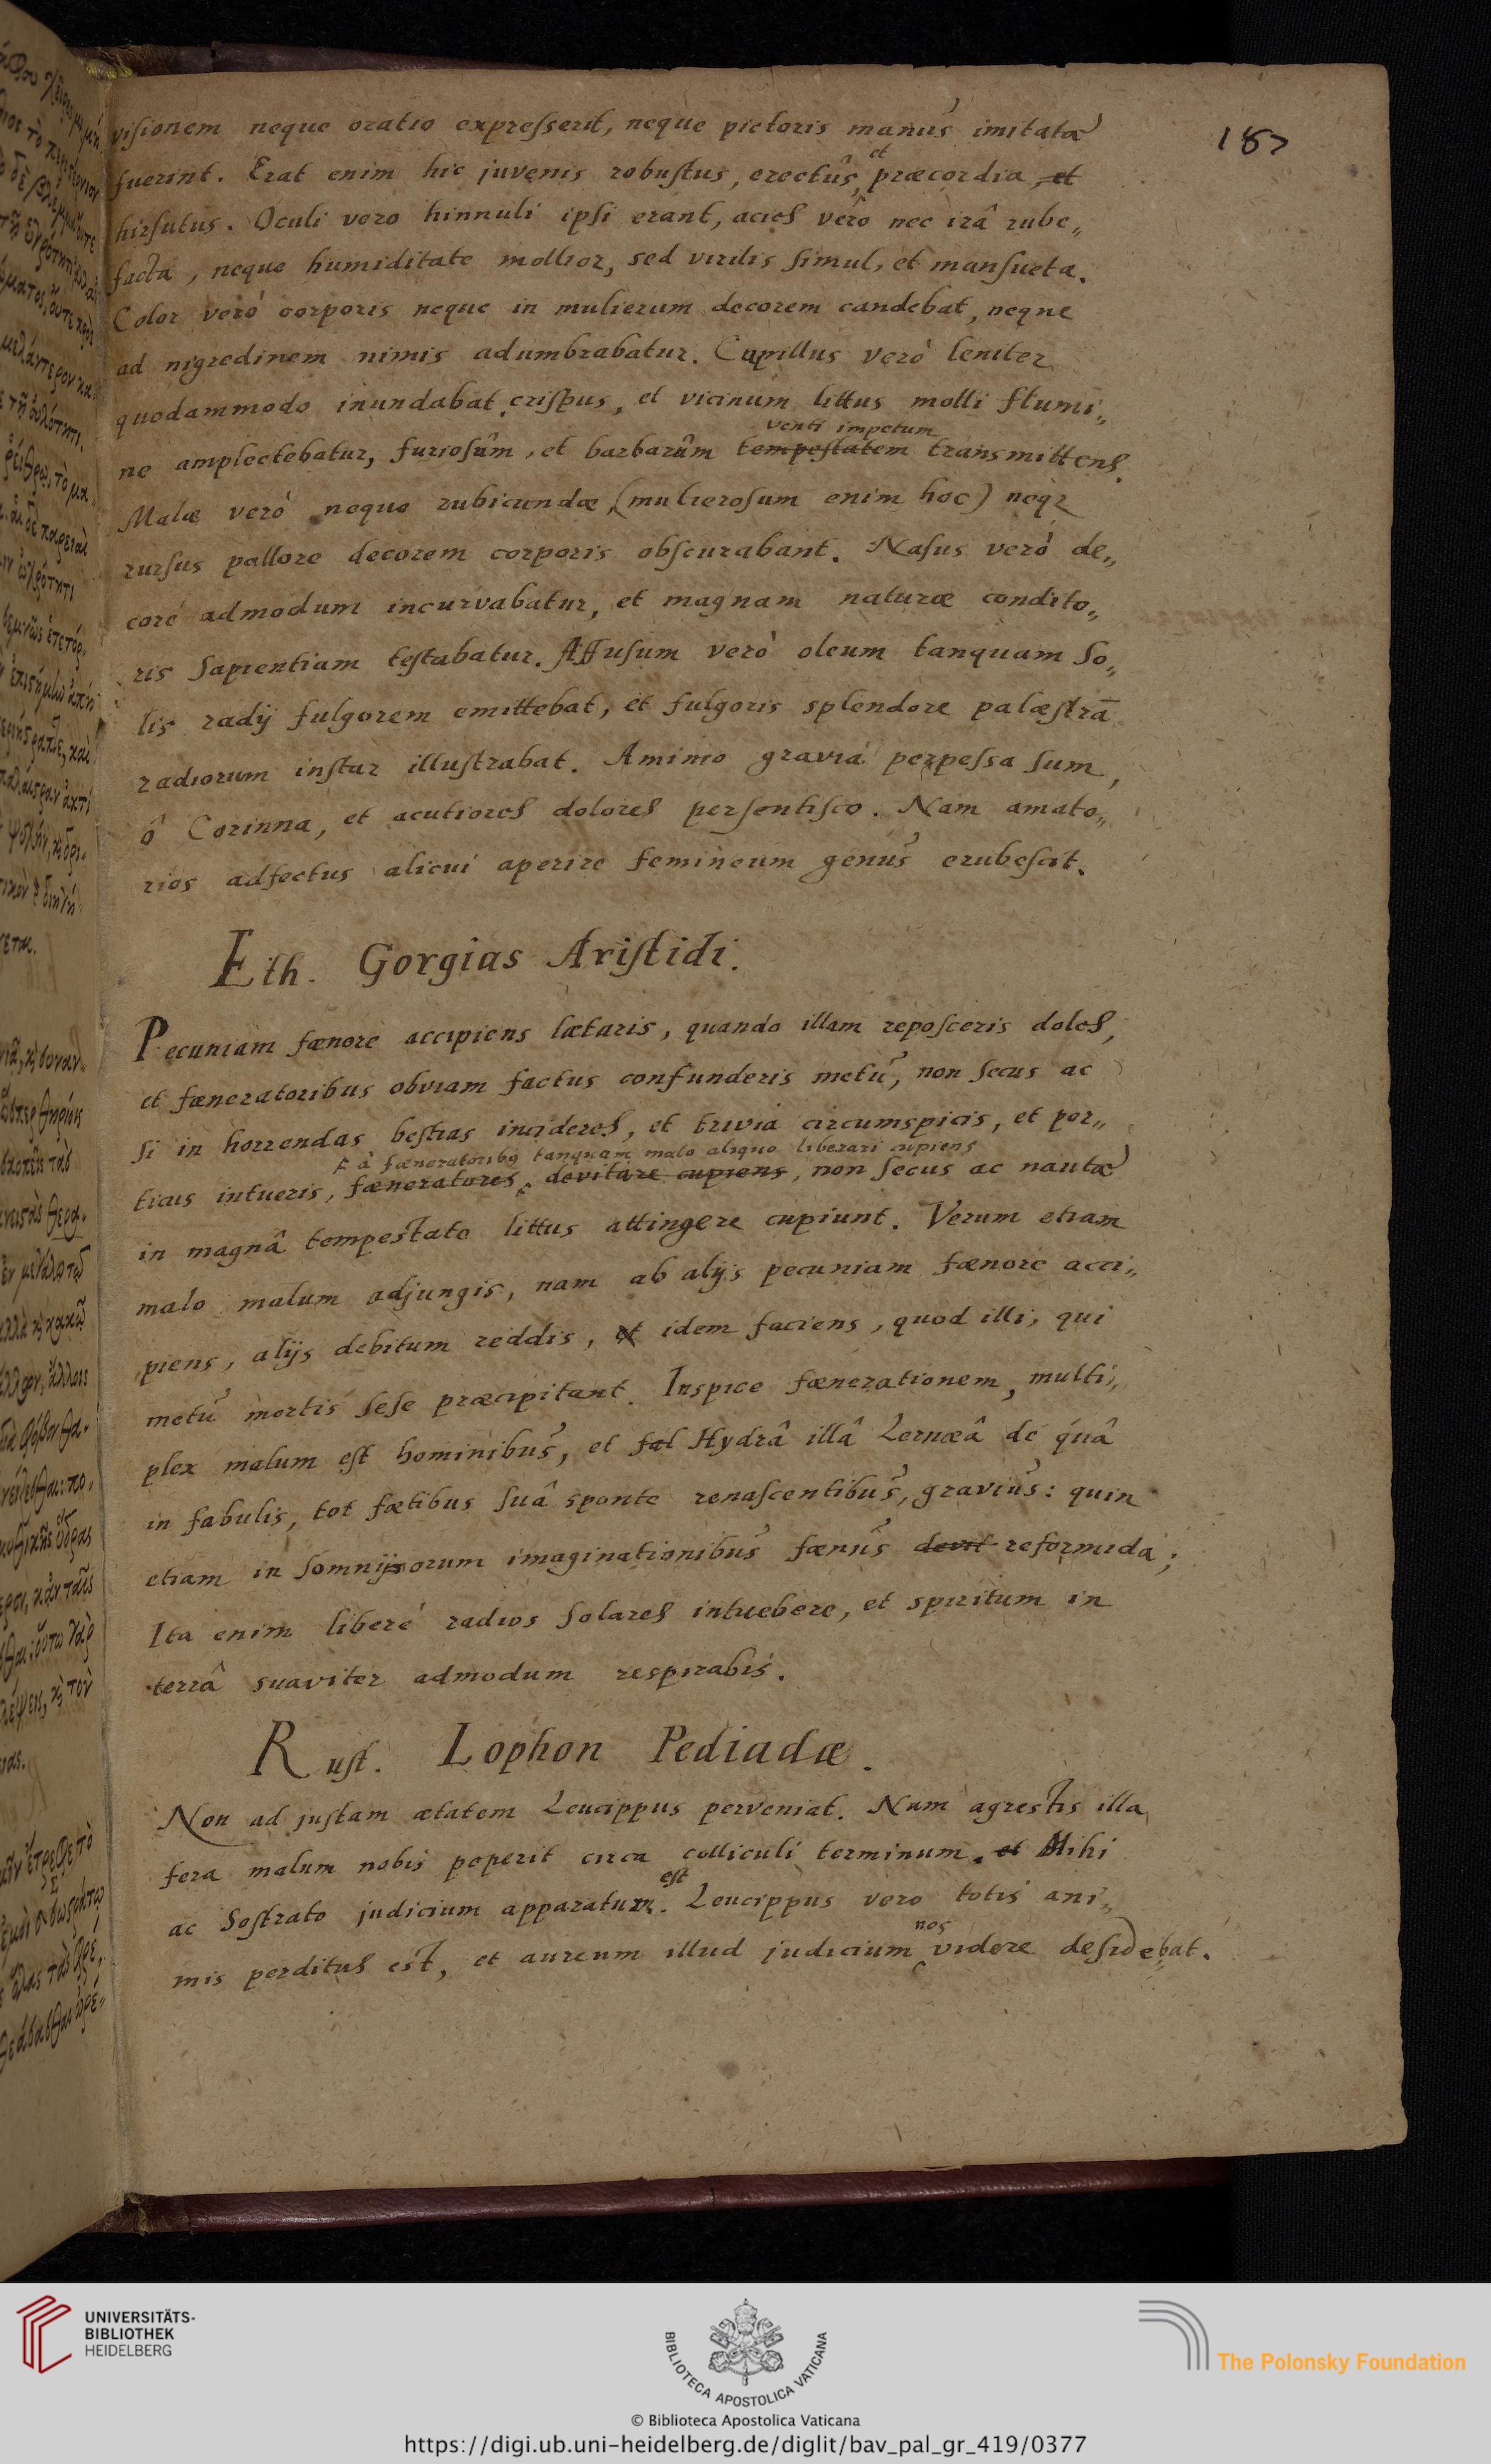 187
visionem neque oratio expresserit, neque pictoris manus imitatæ
et
fuerint. Erat enim hic juvenis robustus, erectûs, præcordia, et
hirsutus. Oculi vero hinnuli ipsi erant, acies verò nec irâ rube„
facta, neque humiditate mollior, sed virilis simul, et mansueta.
Color verò corporis neque in mulierum decorem candebat, neque
ad nigredinem nimis adumbrabatur. Capillus verò leniter
quodammodo inundabat crispus, et vicinum littus molli flumi„
venti impetum
ne amplectebatur, furiosûm, et barbarûm tempestatem transmittens.
Malæ verò neque rubicundæ, (mulierosum enim hoc) neqz
rursus pallore decorem corporis obscurabant. Nasus verò de„
corè admodum incurvabatur, et magnam naturæ condito„
ris sapientiam testabatur. Affusum verò oleum tanquam so„
lis radij fulgorem emittebat, et fulgoris splendore palæstrā
radiorum instar illustrabat. Animo gravia perpessa sum,
ô Corinna, et acutiores dolores persentisco. Nam amato„
rios adfectus alicui aperire femineum genus erubescit.
Eth. Gorgias Aristidi.
Pecuniam fænore accipiens lætaris, quando illam reposceris doles,
et fæneratoribus obviam factus confunderis metu, non secus ac
si in horrendas bestias incideres, et trivia circumspicis, et por„
à fæneratoribꝫ tanquam malo aliquo liberari cupiens
ticus intueris, fæneratores, devitare cupiens, non secus ac nautæ
in magnâ tempestate littus attingere cupiunt. Verum etiam
malo malum adjungis, nam ab alijs pecuniam fænore acci„
piens, alijs debitum reddis, et idem faciens, quod illi, qui
metu mortis sese præcipitant. Inspice fænerationem, multi„
plex malum est hominibus, et fæl Hydrâ illâ Lernæâ de quâ
in fabulis, tot fætibus suâ sponte renascentibus, gravius: quin
etiam in somnijsorum imaginationibus fænus devit reformida;
Ita enim liberè radios solares intuebere, et spiritum in
terrâ suaviter admodum respirabis.
Rust. Lophon Pediadæ.
Non ad justam ætatem Leucippus perveniat. Nam agrestis illa
fera malum nobis peperit circa colliculi terminum. et Mihi
est
ac Sostrato judicium apparatum. Leucippus vero totis ani„
nos
mis perditus est, et aureum illud judicium videre desidebat.
UNIVERSITÄTS-
BIBLIOTHEK
HEIDELBERG
BIBLIOTECA APOSTOLICA VATICANA
The Polonsky Foundation
© Biblioteca Apostolica Vaticana
https://digi.ub.uni-heidelberg.de/diglit/bav_pal_gr_419/0377